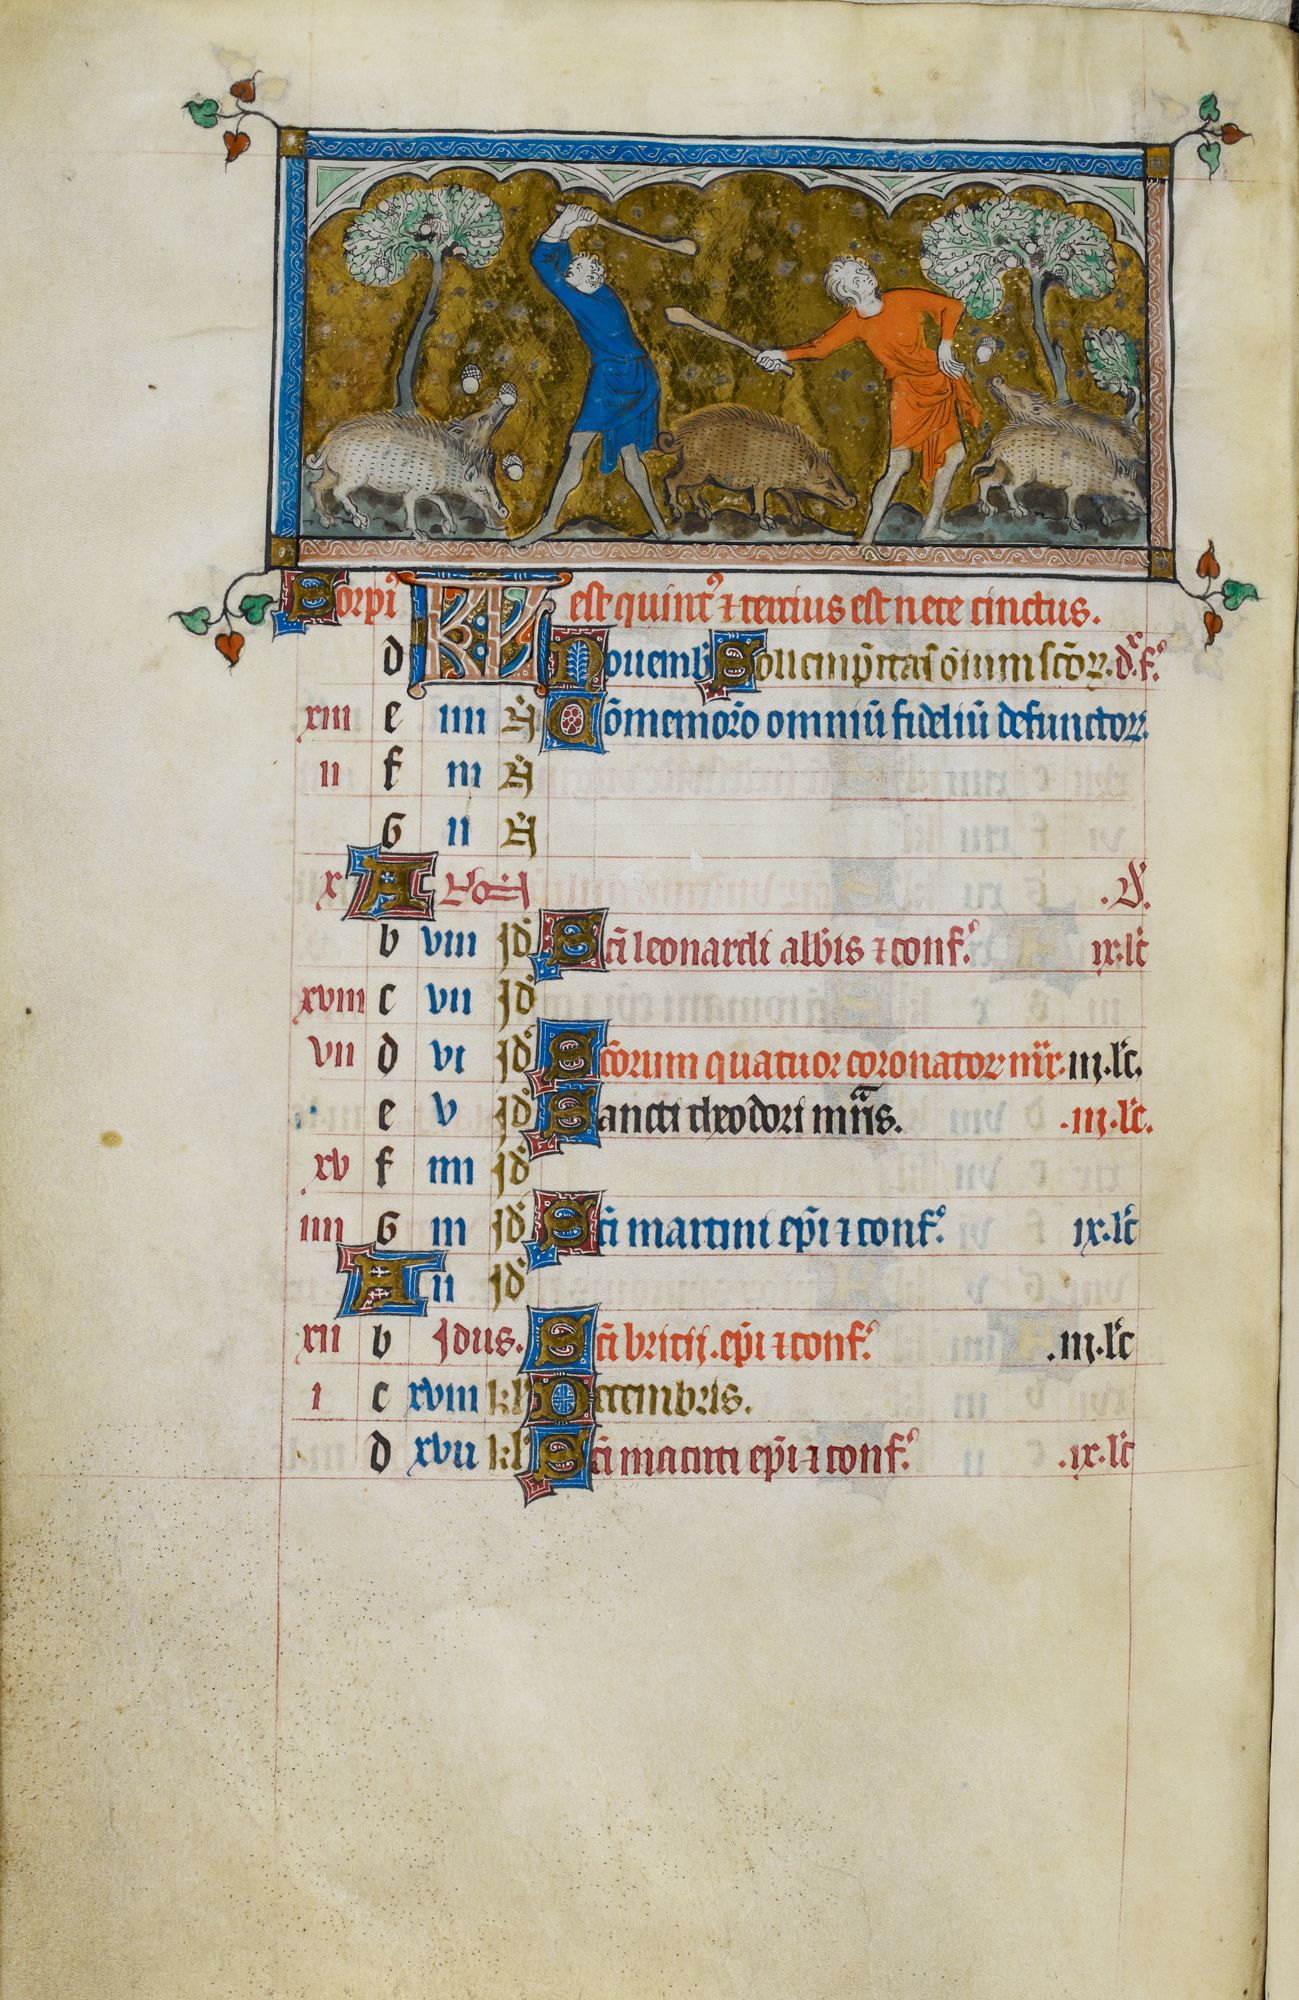 Scorpi⁹ KL est quint⁹ ⁊ tercius est nece cinctus.
d Nouemb̃ Sollempnitas om̃ium sc̃orꝝ. d. f.
xiii e iiii Ñ Cõmemorõ omniũ fideliũ defunctorꝝ.
ii f iii Ñ
G ii Ñ
x A Non .D.
b viii Id᷒ Sc̃i leonardi abb̃is ⁊ conf. ix. lc̃
xviii c vii Id᷒
vii d vi Id᷒ Sc̃orum quatuor coronatorꝝ mr̃. iij. lc̃.
e v Id᷒ Sancti theodori mr̃is. .iij. lc̃.
xv f iiii Id᷒
iiii G iii Id᷒ Sc̃i martini ep̃i ⁊ conf. ix. lc̃
A ii Id᷒
xii b Idus. Sc̃i bricij. ep̃i ⁊ conf. .iij. lc̃
i c xviii kl᷒ Decembris.
d xvii kl᷒ Sc̃i macuti ep̃i ⁊ conf. .ix. lc̃